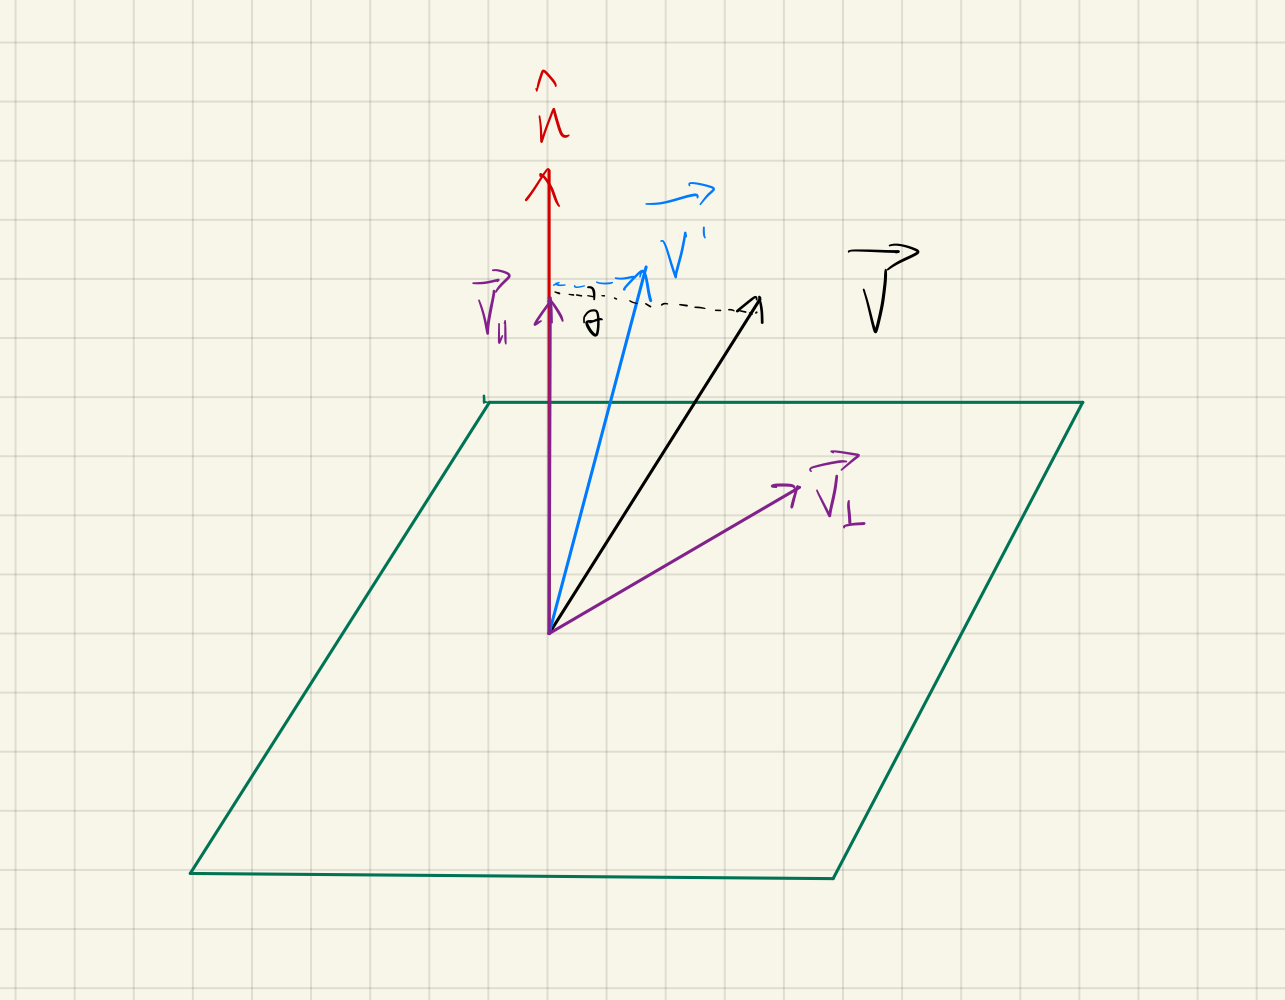 n̂
v⃗'
v⃗
v⃗∥
θ
v⃗⊥